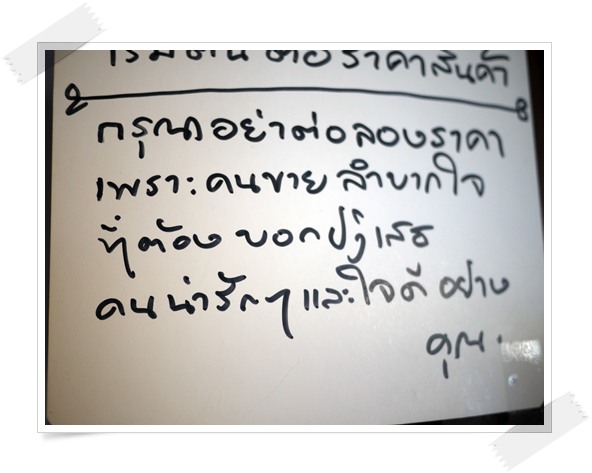 ต่อราคาสินค้า
กรุณาอย่าต่อลองราคา
เพราะคนขายลำบากใจ
ที่ต้องบอกปฏิเสธ
คนน่ารักๆ และใจดี อย่าง
คุณ.